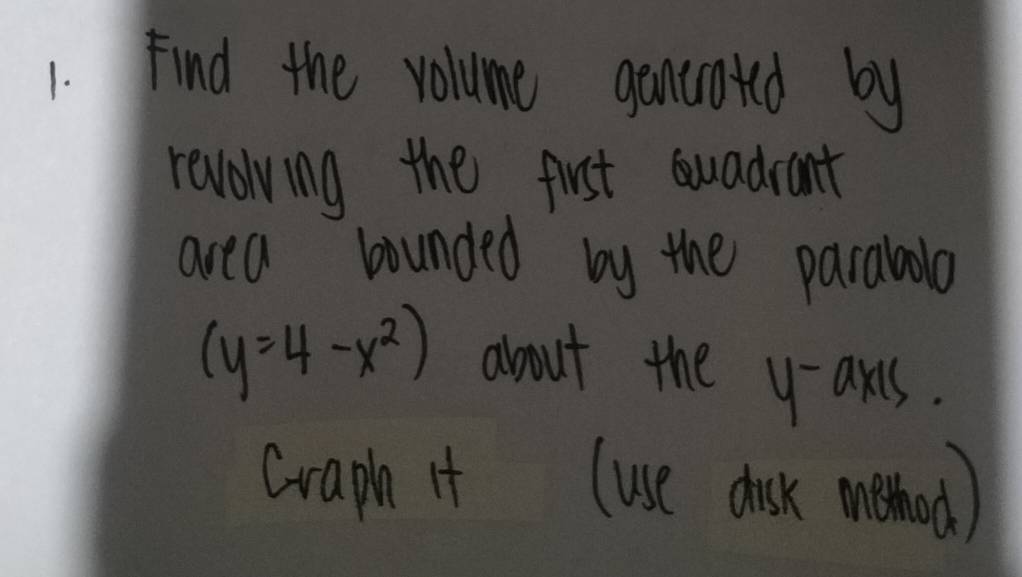 1. Find the volume generated by
revolving the first Quadrant
area bounded by the parabola
(y=4-x²) about the y-axis.
Graph it (use disk method)